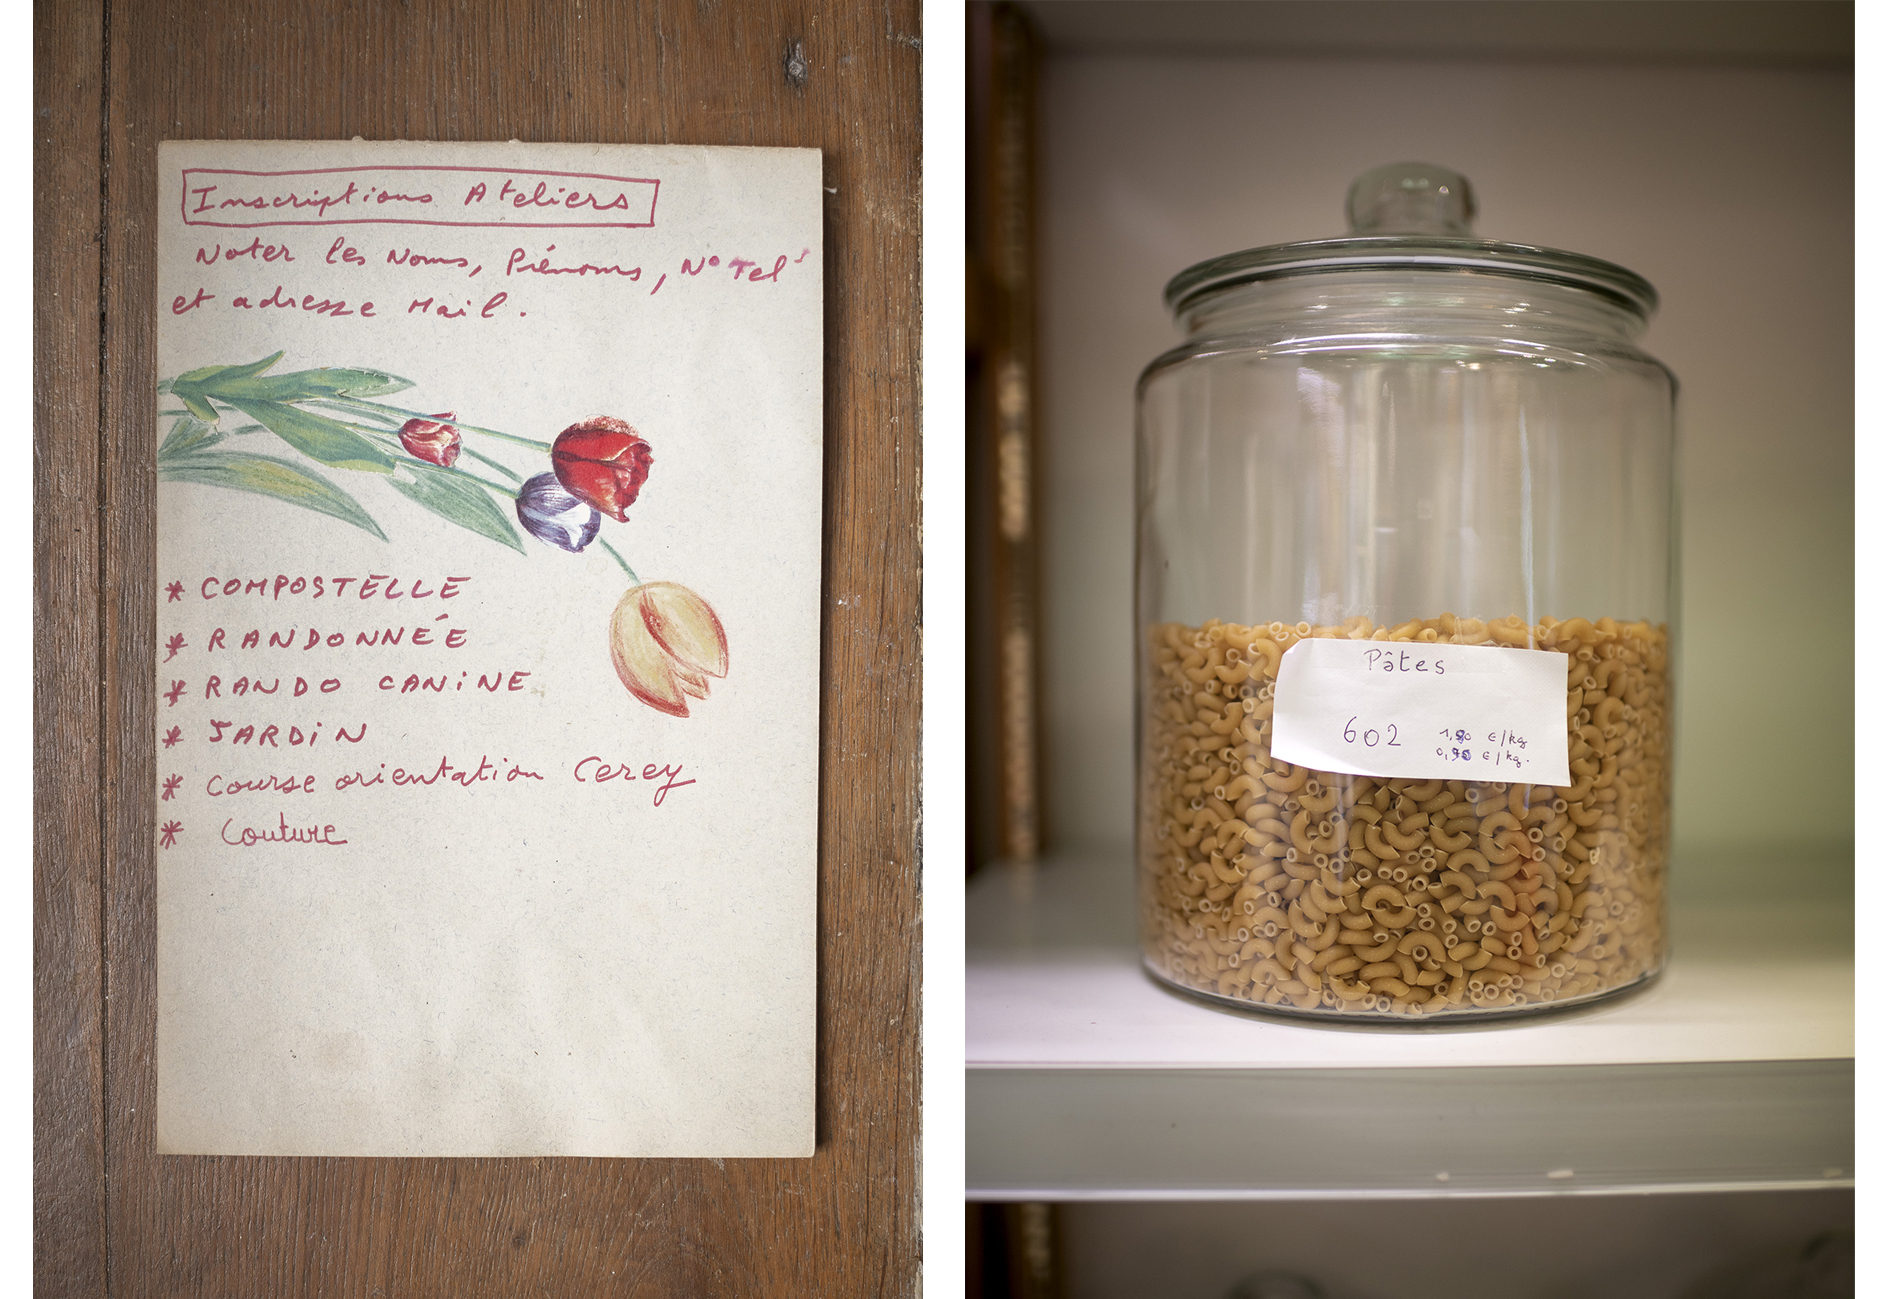 Inscriptions Ateliers
Noter les Noms, Prénoms, N° Tel
et adresse Mail.
* COMPOSTELLE
* RANDONNÉE
* RANDO CANINE
* JARDIN
* Course orientation Cerey
* Couture
Pâtes
602
€/kg
€/kg.